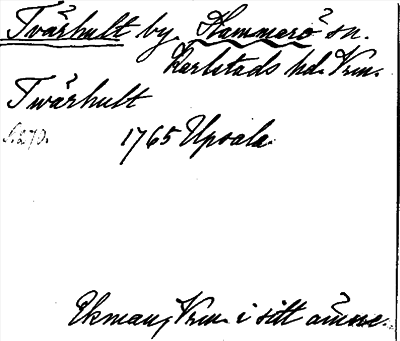 Tvärhult by. Hammarö sn.
Karlstads hd. Vrm.
Twärhult
S.270.
1765 Upsala
Ekman, Vrm. i sitt ämne.